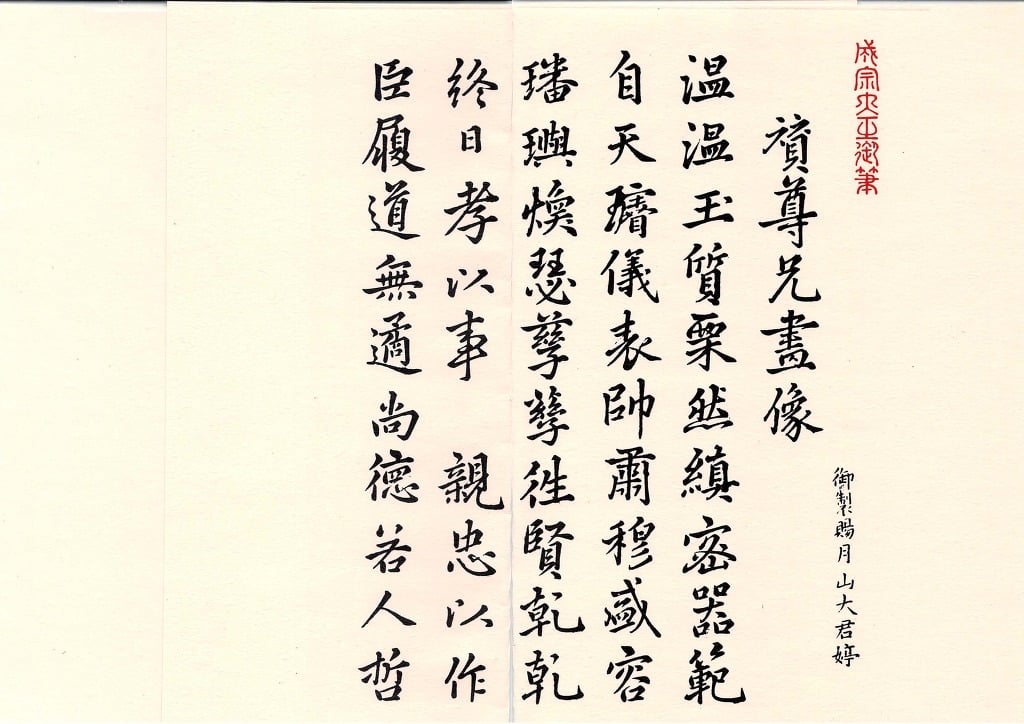 成宗大王御筆
御製賜月山大君婷
贊尊兄畫像
温温玉質栗然縝密器範
自天璿儀表帥肅穆盛容
璠璵煥瑟孶孶徃賢乾乾
終日孝以事 親忠以作
臣履道無遹尚德若人哲